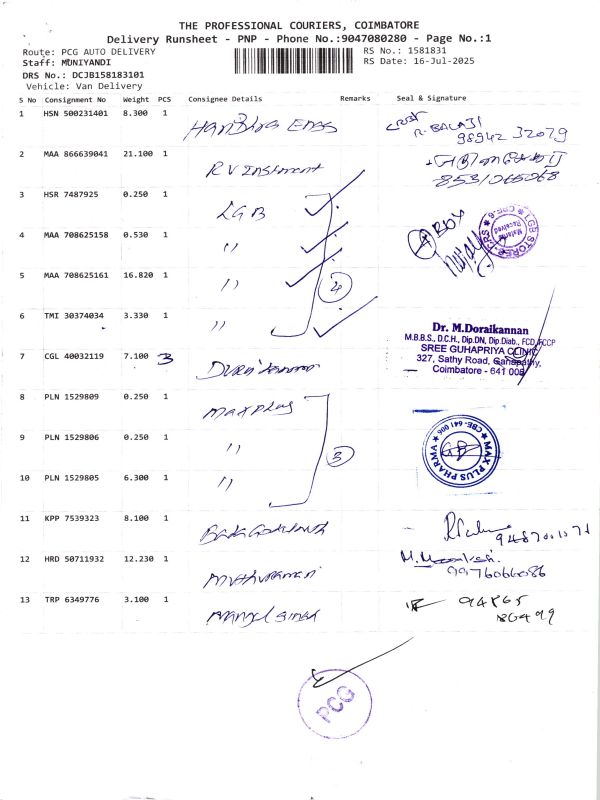 THE PROFESSIONAL COURIERS, COIMBATORE
Delivery Runsheet - PNP - Phone No.:9047080280 - Page No.:1
Route: PCG AUTO DELIVERY
RS No.: 1581831
Staff: MUNIYANDI
RS Date: 16-Jul-2025
DRS No.: DCJB158183101
Vehicle: Van Delivery
S No Consignment No Weight PCS Consignee Details Remarks Seal & Signature
1 HSN 500231401 8.300 1
R. BALAJI
98942 32079
2 MAA 866639041 21.100 1 RV Instrument
8531065068
3 HSR 7487925 0.250 1 LGB
4 MAA 708625158 0.530 1 "
4 BOX
LGB STORES
Material Received
5 MAA 708625161 16.820 1 "
4
6 TMI 30374034 3.330 1 "
7 CGL 40032119 7.100 3
Dr. M.Doraikannan
M.B.B.S., D.C.H., Dip.DN, Dip.Diab., FCD, FCCP
SREE GUHAPRIYA CLINIC
327, Sathy Road, Ganapathy,
Coimbatore - 641 006
8 PLN 1529809 0.250 1 Max plus
9 PLN 1529806 0.250 1 "
3
MAX PLUS PHARMA ★ CBE- 641 006 ★
10 PLN 1529805 6.300 1 "
11 KPP 7539323 8.100 1
12 HRD 50711932 12.230 1
9976066086
13 TRP 6349776 3.100 1
94865
86499
PCG